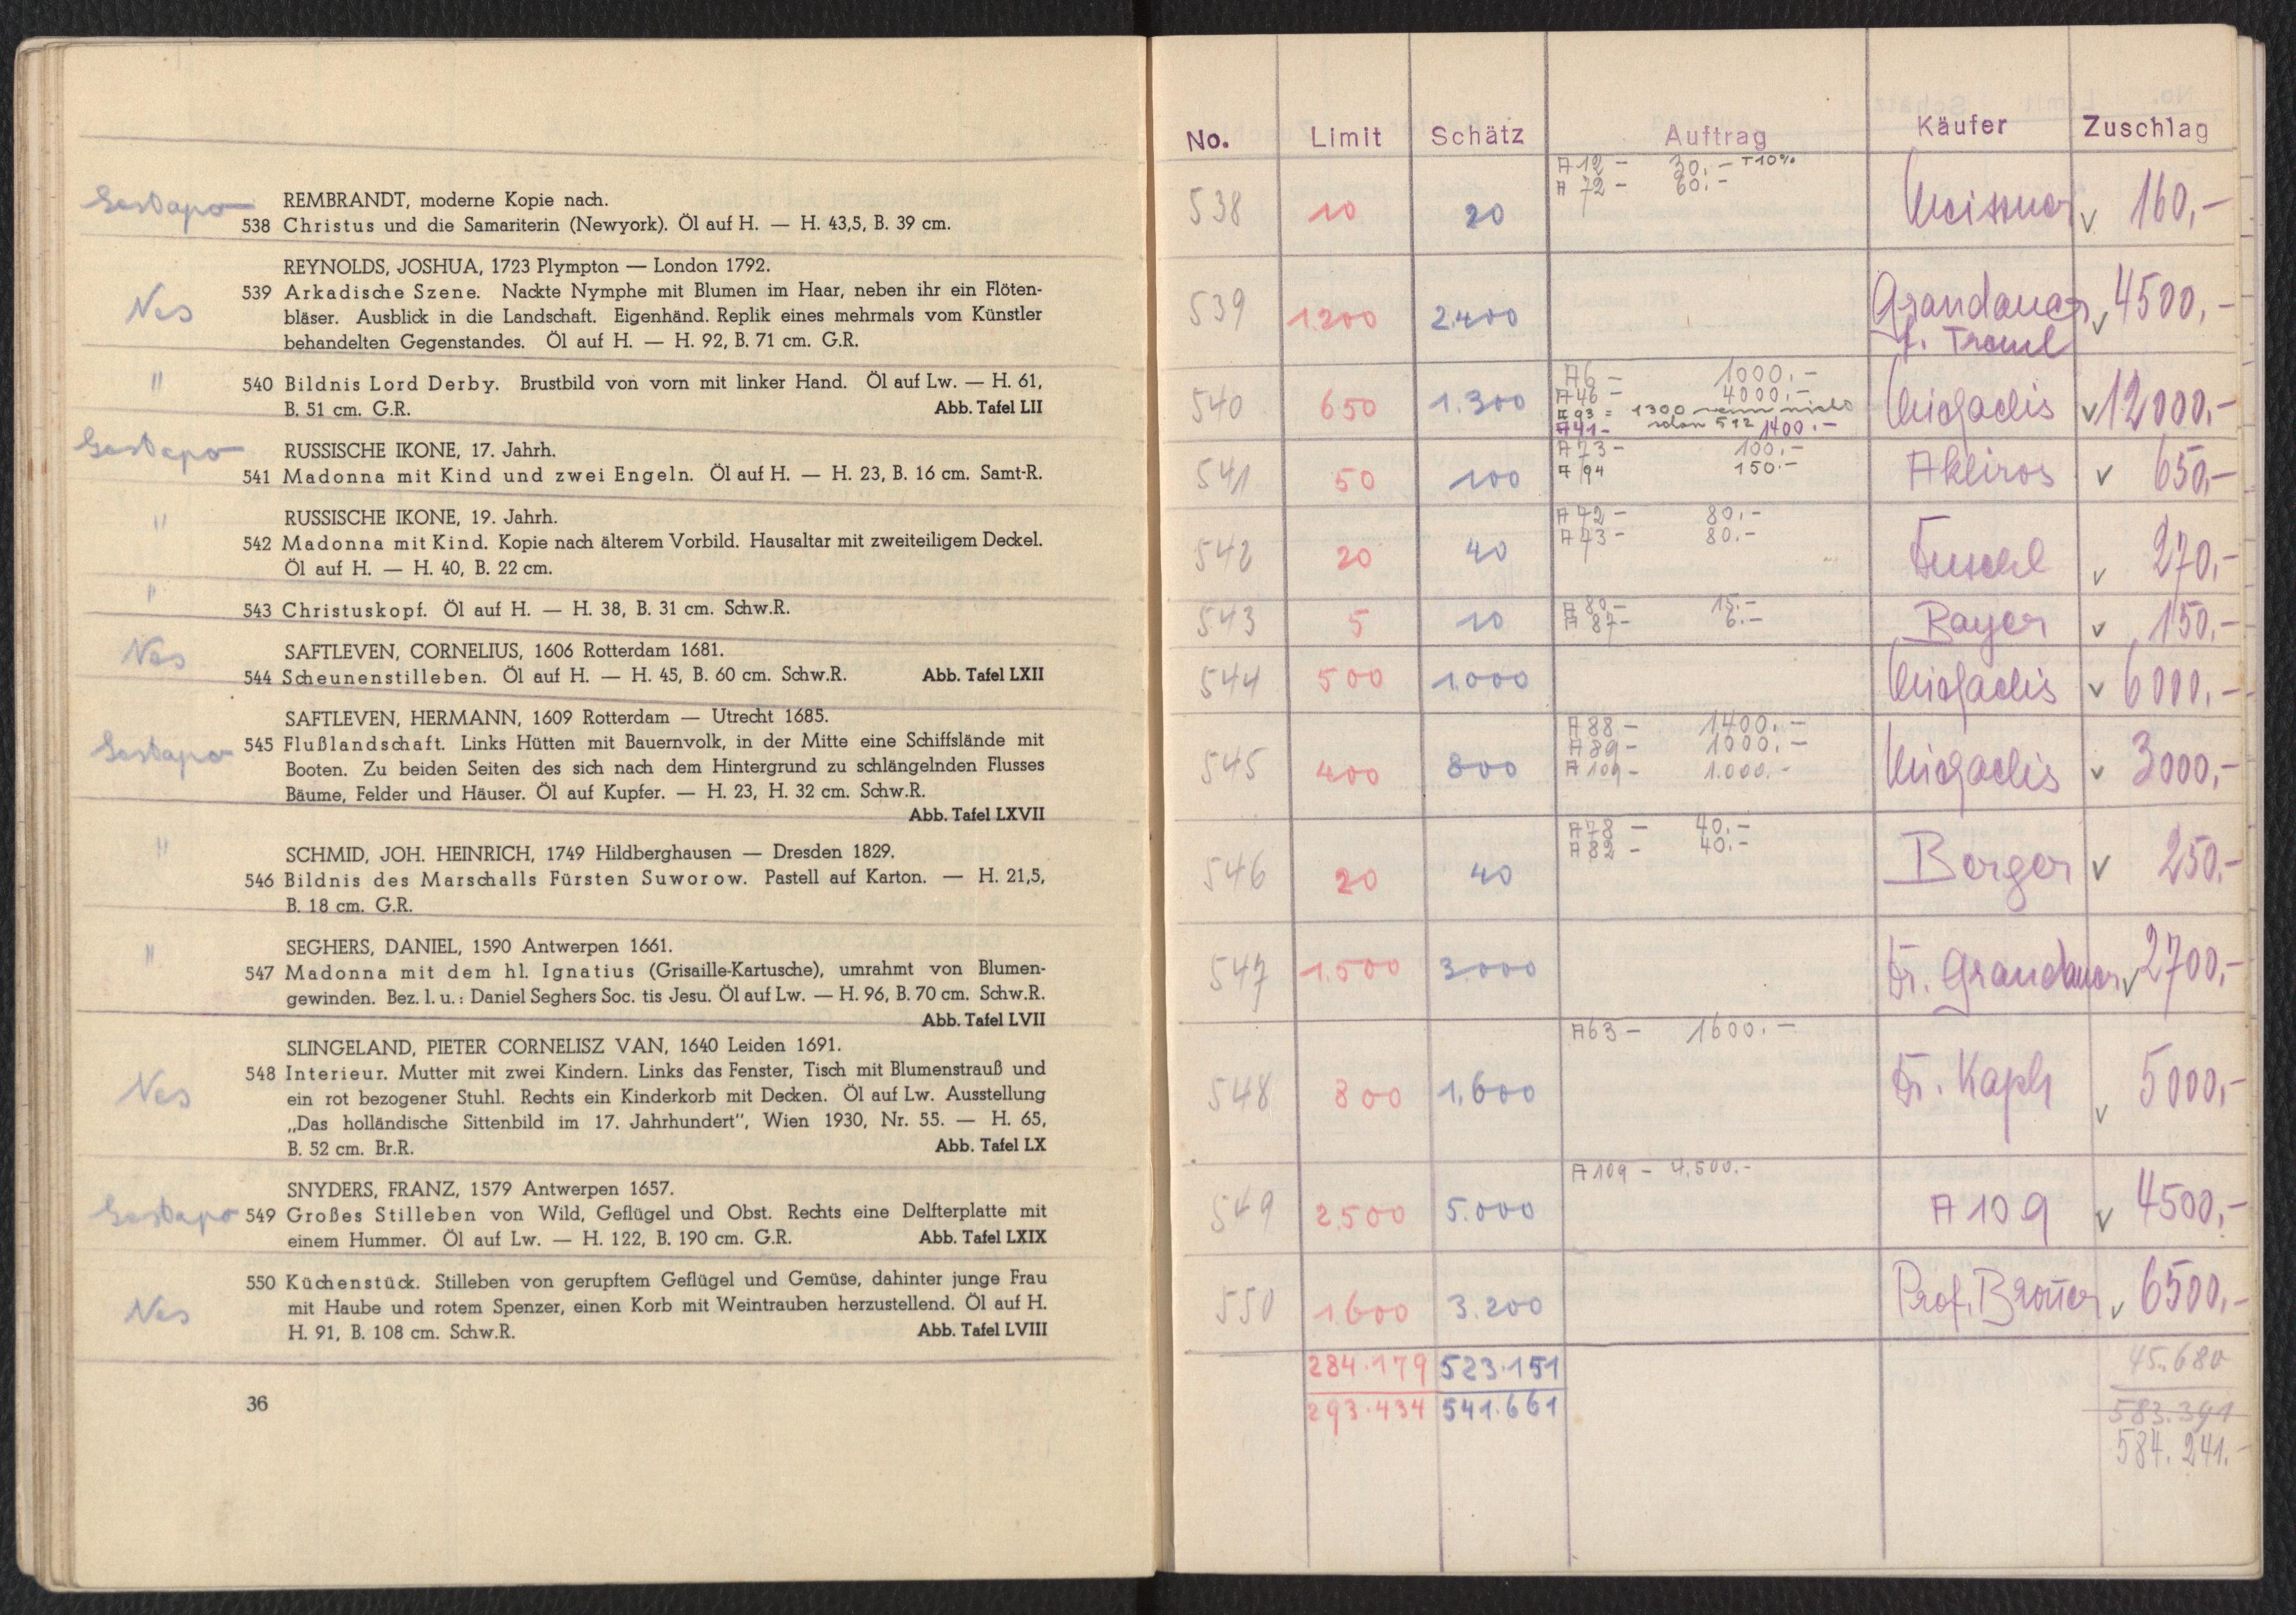 Gestapo
REMBRANDT, moderne Kopie nach.
538 Christus und die Samariterin (Newyork). Öl auf H. — H. 43,5, B. 39 cm.
REYNOLDS, JOSHUA, 1723 Plympton — London 1792.
Nes
539 Arkadische Szene. Nackte Nymphe mit Blumen im Haar, neben ihr ein Flöten-
bläser. Ausblick in die Landschaft. Eigenhänd. Replik eines mehrmals vom Künstler
behandelten Gegenstandes. Öl auf H. — H. 92, B. 71 cm. G.R.
" 540 Bildnis Lord Derby. Brustbild von vorn mit linker Hand. Öl auf Lw. — H. 61,
B. 51 cm. G.R. Abb. Tafel LII
Gestapo
RUSSISCHE IKONE, 17. Jahrh.
541 Madonna mit Kind und zwei Engeln. Öl auf H. — H. 23, B. 16 cm. Samt-R.
" RUSSISCHE IKONE, 19. Jahrh.
542 Madonna mit Kind. Kopie nach älterem Vorbild. Hausaltar mit zweiteiligem Deckel.
Öl auf H. — H. 40, B. 22 cm.
" 543 Christuskopf. Öl auf H. — H. 38, B. 31 cm. Schw.R.
Nes
SAFTLEVEN, CORNELIUS, 1606 Rotterdam 1681.
544 Scheunenstilleben. Öl auf H. — H. 45, B. 60 cm. Schw.R. Abb. Tafel LXII
SAFTLEVEN, HERMANN, 1609 Rotterdam — Utrecht 1685.
Gestapo
545 Flußlandschaft. Links Hütten mit Bauernvolk, in der Mitte eine Schiffslände mit
Booten. Zu beiden Seiten des sich nach dem Hintergrund zu schlängelnden Flusses
Bäume, Felder und Häuser. Öl auf Kupfer. — H. 23, H. 32 cm. Schw.R.
Abb. Tafel LXVII
" SCHMID, JOH. HEINRICH, 1749 Hildberghausen — Dresden 1829.
546 Bildnis des Marschalls Fürsten Suworow. Pastell auf Karton. — H. 21,5,
B. 18 cm. G.R.
" SEGHERS, DANIEL, 1590 Antwerpen 1661.
547 Madonna mit dem hl. Ignatius (Grisaille-Kartusche), umrahmt von Blumen-
gewinden. Bez. l. u.: Daniel Seghers Soc. tis Jesu. Öl auf Lw. — H. 96, B. 70 cm. Schw.R.
Abb. Tafel LVII
SLINGELAND, PIETER CORNELISZ VAN, 1640 Leiden 1691.
Nes
548 Interieur. Mutter mit zwei Kindern. Links das Fenster, Tisch mit Blumenstrauß und
ein rot bezogener Stuhl. Rechts ein Kinderkorb mit Decken. Öl auf Lw. Ausstellung
„Das holländische Sittenbild im 17. Jahrhundert", Wien 1930, Nr. 55. — H. 65,
B. 52 cm. Br.R. Abb. Tafel LX
SNYDERS, FRANZ, 1579 Antwerpen 1657.
Gestapo
549 Großes Stilleben von Wild, Geflügel und Obst. Rechts eine Delfterplatte mit
einem Hummer. Öl auf Lw. — H. 122, B. 190 cm. G.R. Abb. Tafel LXIX
550 Küchenstück. Stilleben von gerupftem Geflügel und Gemüse, dahinter junge Frau
Nes
mit Haube und rotem Spenzer, einen Korb mit Weintrauben herzustellend. Öl auf H.
H. 91, B. 108 cm. Schw.R. Abb. Tafel LVIII
36
No. Limit Schätz Auftrag Käufer Zuschlag
A 12 - 30.- +10%
A 72 - 60.-
538 10 20 Meissner v 160,-
539 1.200 2.400 Grandauer v 4500,-
f. Traml
A6 - 1000.-
A46 - 4000.-
A 93 = 1300 wenn nicht
schon 512
A41 - 1400.-
540 650 1.300 Michaelis v 12000,-
A73 - 100.-
A 94 150.-
541 50 100 Akliros v 650,-
A 72 - 80.-
A 43 - 80.-
542 20 40 Fuschl v 270,-
A 80 - 15.-
A 87 - 6.-
543 5 10 Bayer v 150,-
544 500 1.000 Michaelis v 6000,-
A88 - 1400.-
A89 - 1000.-
A 109 - 1.000.-
545 400 800 Michaelis v 3000,-
A78 - 40.-
A 82 - 40.-
546 20 40 Berger v 250,-
547 1.500 3.000 Fr. Grandauer v 2700,-
A63 - 1600.-
548 800 1.600 Fr. Kapl v 5000,-
A 109 - 4.500.-
549 2.500 5.000 A 109 v 4500,-
550 1.600 3.200 Prof. Brauer v 6500,-
284.179 523.151 45.680
293.434 541.661 583.391
584.241.-